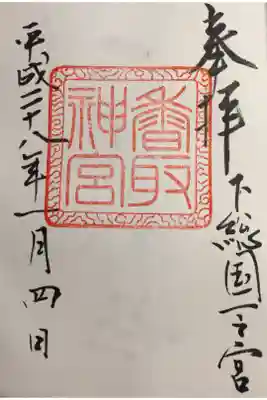 奉拝
下総国一之宮
香取
神宮
平成二十八年一月四日